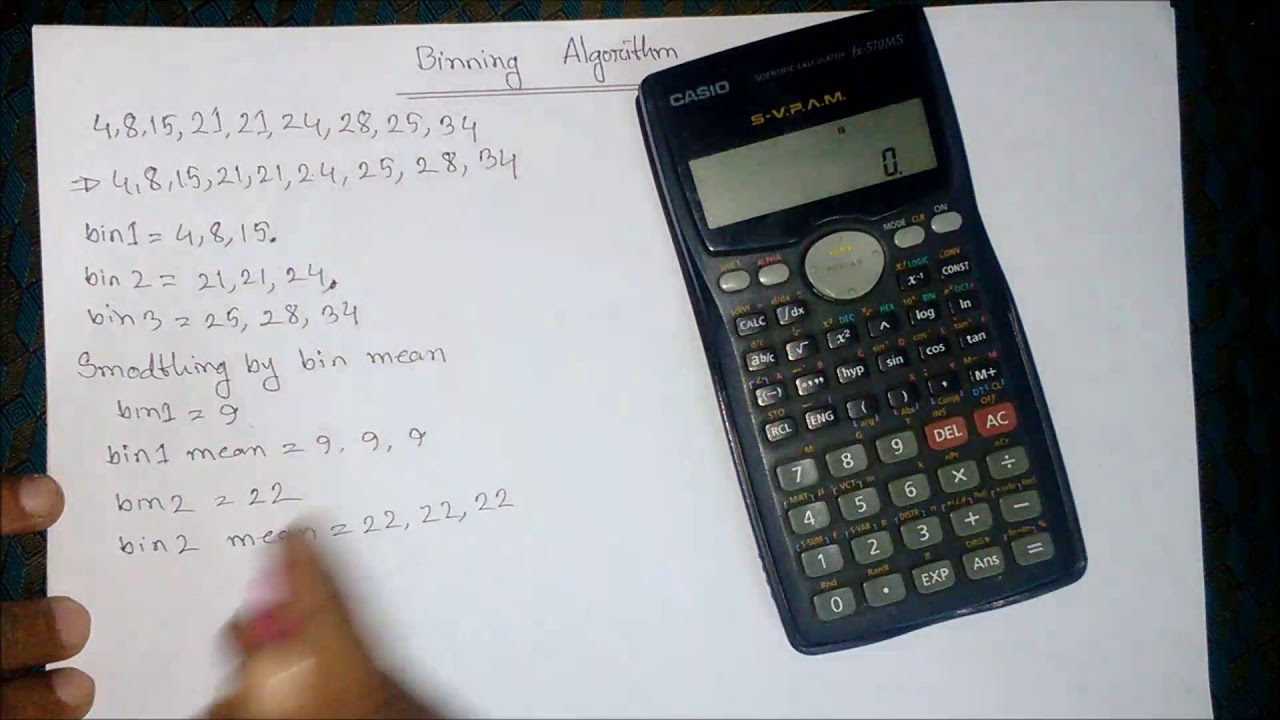 Binning Algorithm
4,8,15,21,21,24,28,25,34
⇒ 4,8,15,21,21,24,25,28,34
bin1 = 4,8,15.
bin 2 = 21,21,24.
bin3 = 25,28,34
Smodtling by bin mean
bin1 = 9
bin1 mean = 9, 9, 9
bin2 = 22
bin2 mean = 22, 22, 22
CASIO
SCIENTIFIC CALCULATOR fx-570MS
S-V.P.A.M.
0.
SHIFT ALPHA MODE CLR ON
x⁻¹ CONST
CALC ∫dx x² ^ log ln
ab/c √ hyp sin cos tan
(-) °'" ( ) , M+
RCL ENG
7 8 9 DEL AC
4 5 6 × ÷
1 2 3 + −
0 . EXP Ans =